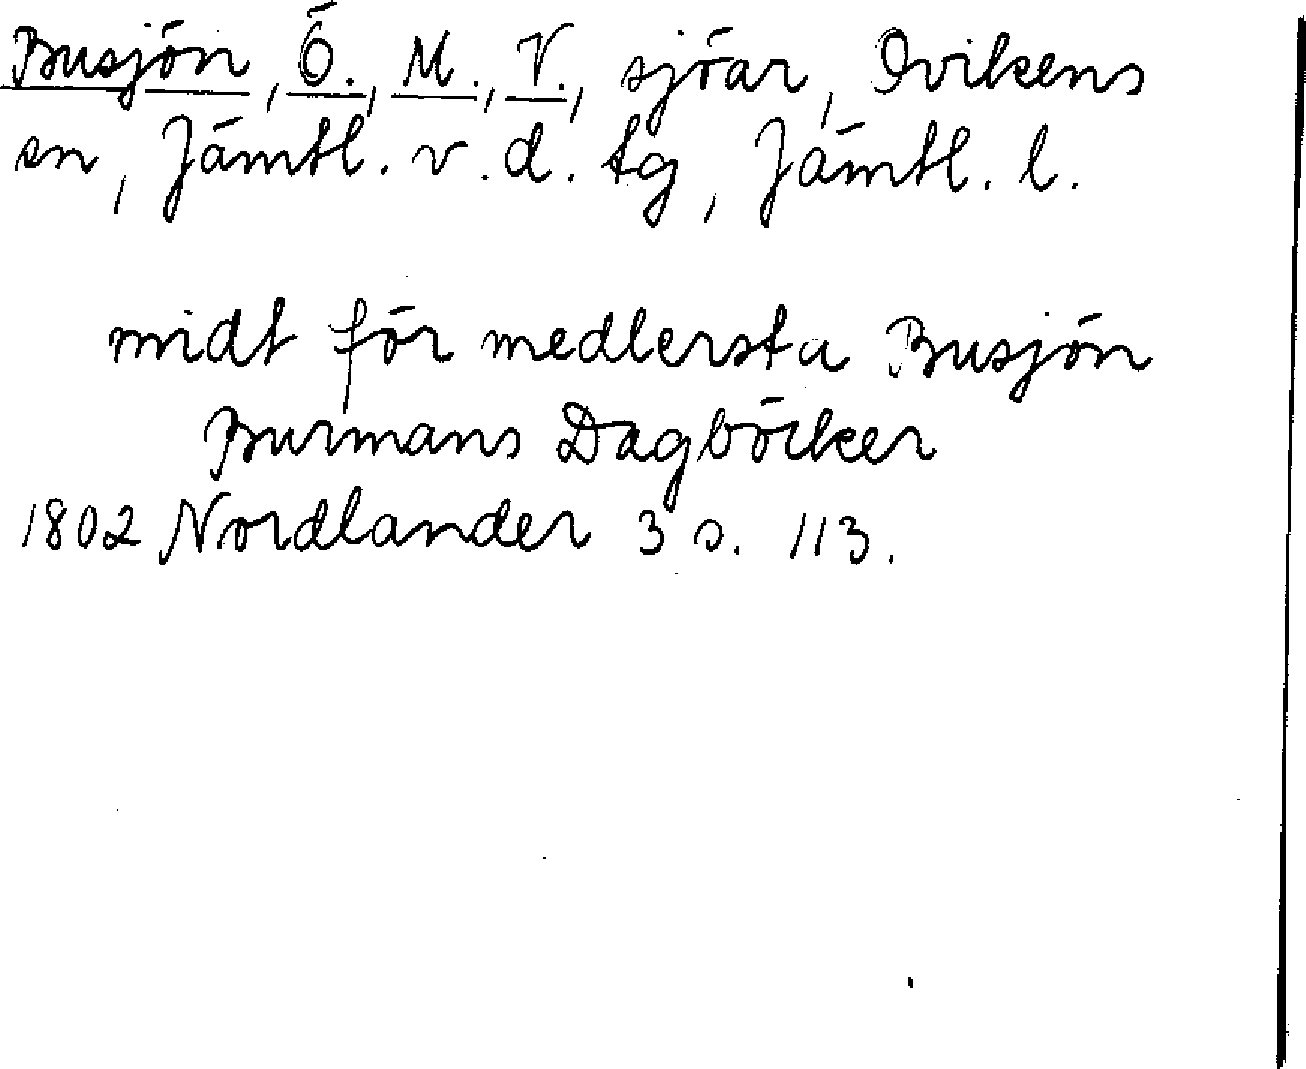 Busjön, Ö., M., V., sjöar, Ovikens
sn, Jämtl. v. d. tg, Jämtl. l.
midt för medlersta Busjön
Burmans Dagböcker
1802 Nordlander 3 s. 113.